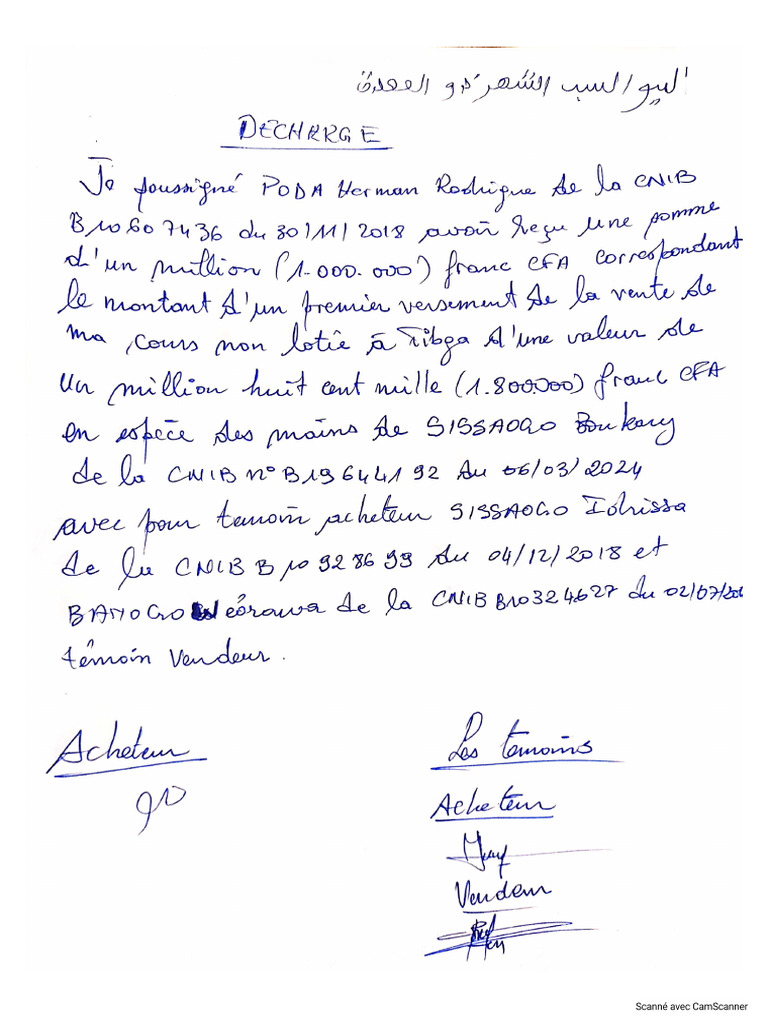 اليو السبت الشهر ذو القعدة
DECHARGE
Je soussigné PODA Herman Rodrigue de la CNIB
B10607436 du 30/11/2018 avoir reçu une somme
d'un million (1.000.000) franc CFA correspondant
le montant d'un premier versement de la vente de
ma cours non lotie à Tibga d'une valeur de
Un million huit cent mille (1.800.000) franc CFA
en espèce des mains de SISSAOGO Boukary
de la CNIB n° B19644192 du 06/03/2024
avec pour temoin acheteur SISSAOGO Idrissa
de la CNIB B10928699 du 04/12/2018 et
de la CNIB B10324627 du 02/07/201
témoin Vendeur.
Acheteur
Les temoins
Acheteur
Vendeur
Scanné avec CamScanner